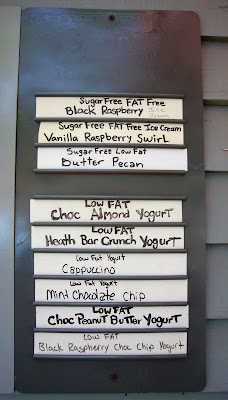 Sugar Free FAT Free
Black Raspberry
Sugar Free FAT Free Ice Cream
Vanilla Raspberry Swirl
Sugar Free Low Fat
Butter Pecan
LOW FAT
Choc Almond YogurT
LOW FAT
Heath Bar Crunch YogurT
Low Fat Yogurt
Cappuccino
Low Fat Yogurt
Mint Chocolate Chip
LOW FAT
Choc Peanut Butter YogurT
LOW FAT
Black Raspberry Choc Chip Yogurt